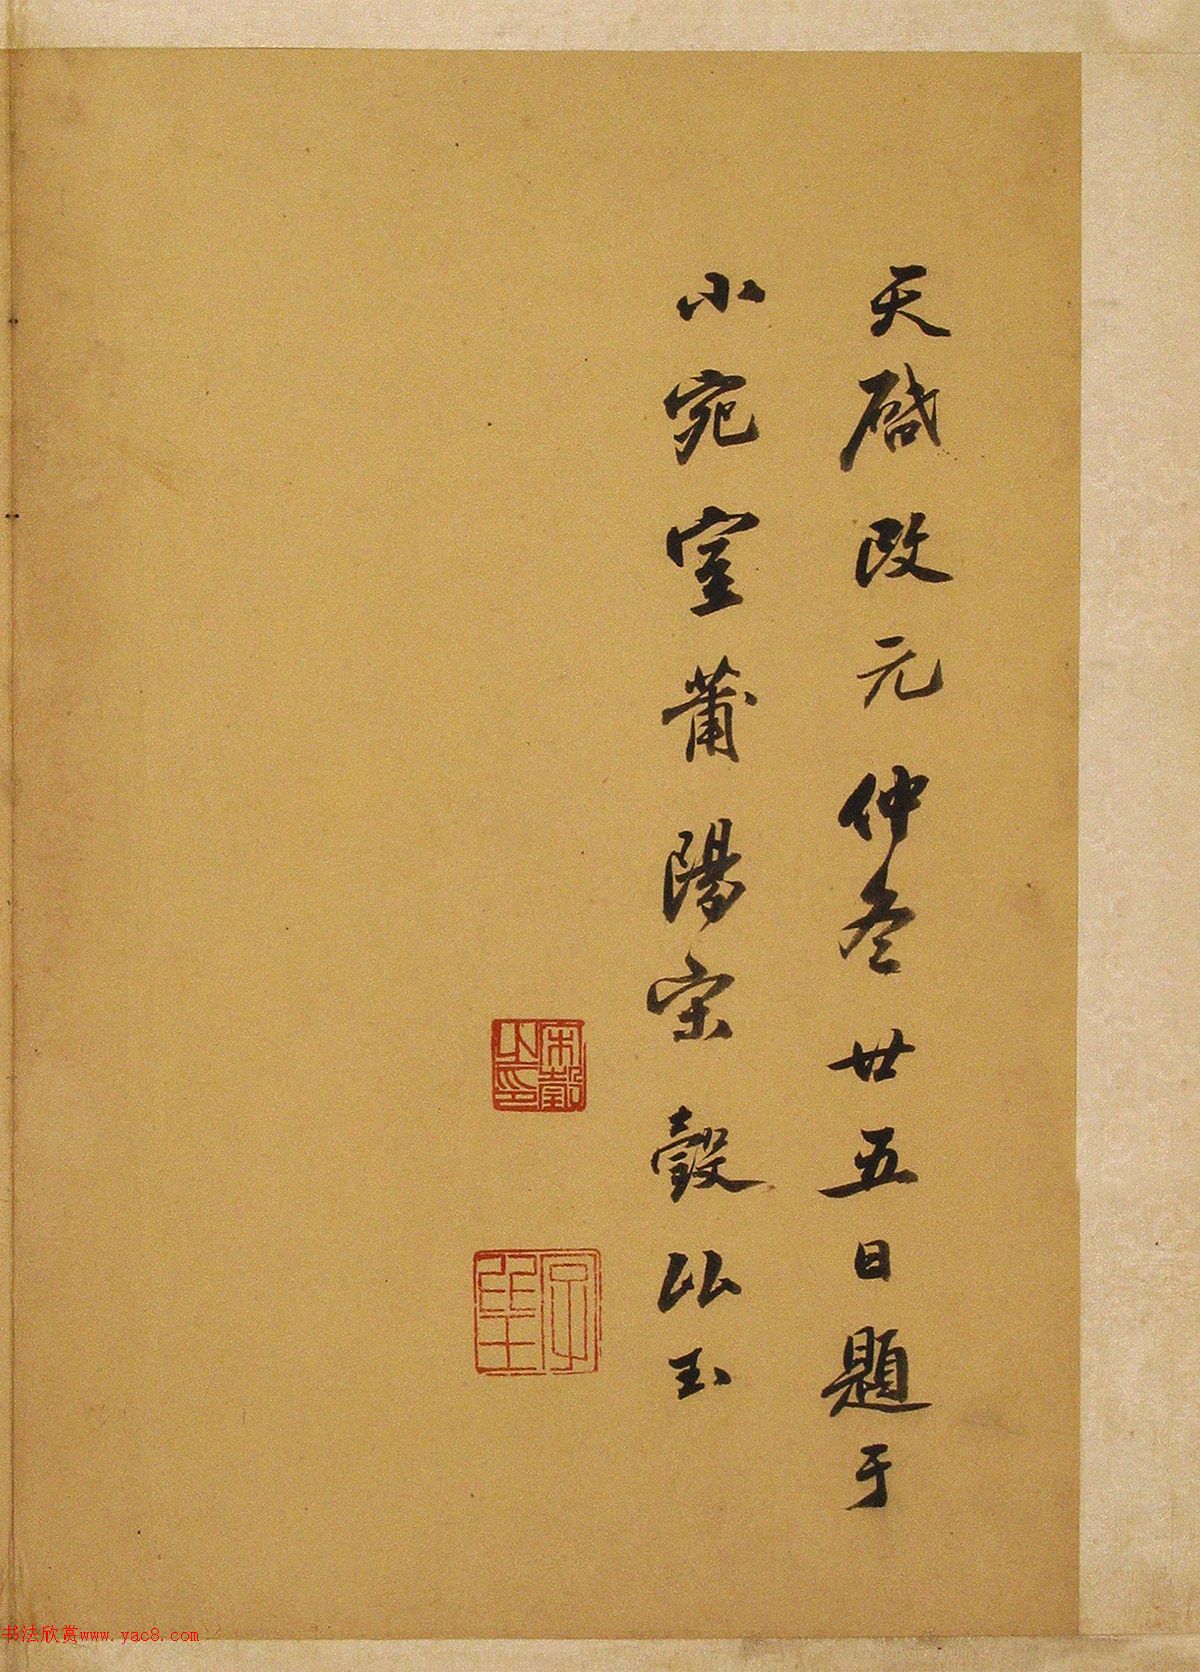 天啟改元仲冬廿五日題于
小宛室莆陽宋毂比玉
宋毂之印
书法欣赏www.yac8.com